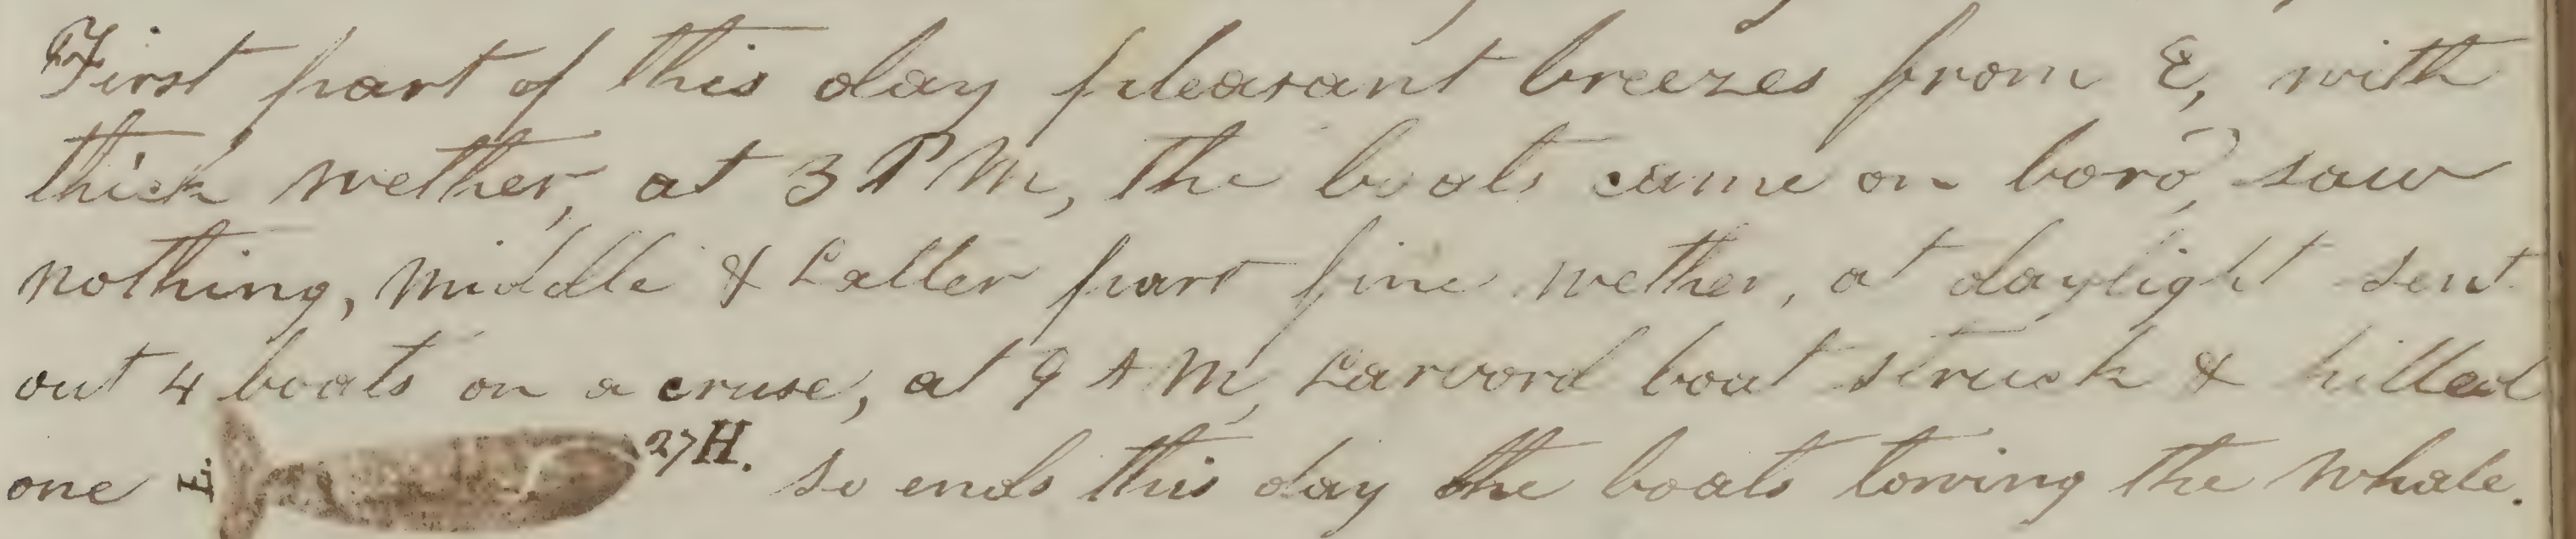 First part of this day pleasant breezes from E, with
thick wether, at 3 PM, the boats came on bord, saw
nothing, middle & Latter part fine wether, at daylight sent
out 4 boats on a cruse, at 9 AM, Larvord boat struck & killed
one E. 27 H. So ends this day the boats towing the whale.